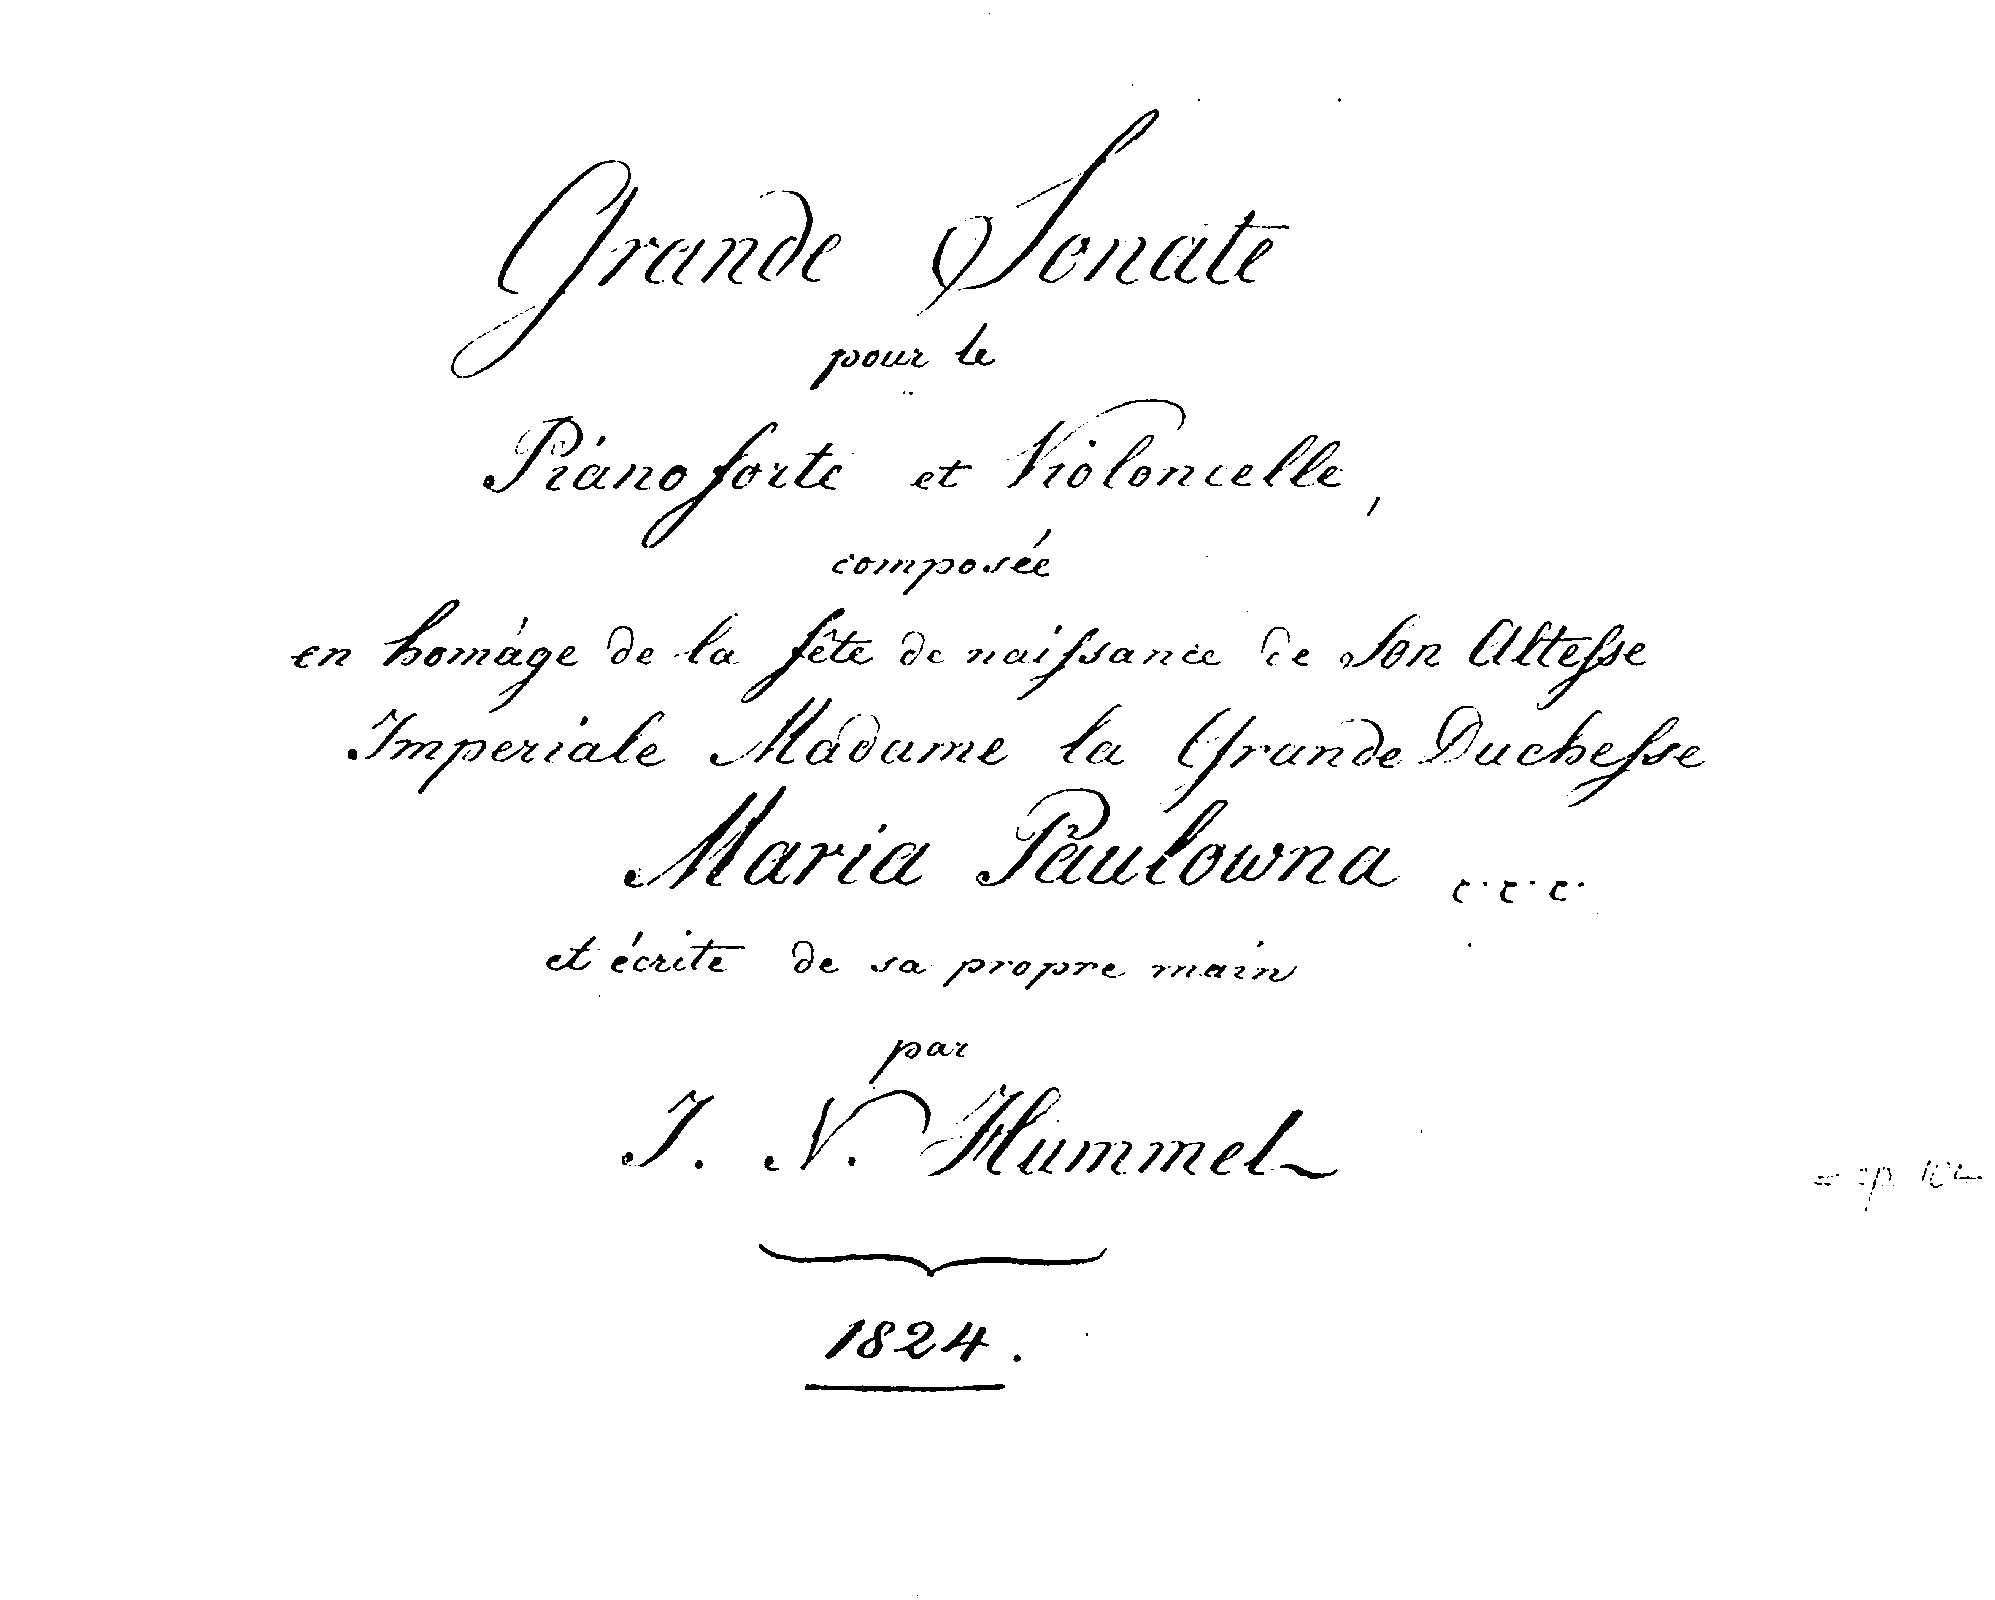 Grande Sonate
pour le
Pianoforte et Violoncelle,
composée
en homáge de la fête de naissance de Son Altesse
Imperiale Madame la Grande Duchesse
Maria Paulowna c. c. c.
et écrite de sa propre main
par
J. N. Hummel
= op. 104
1824.